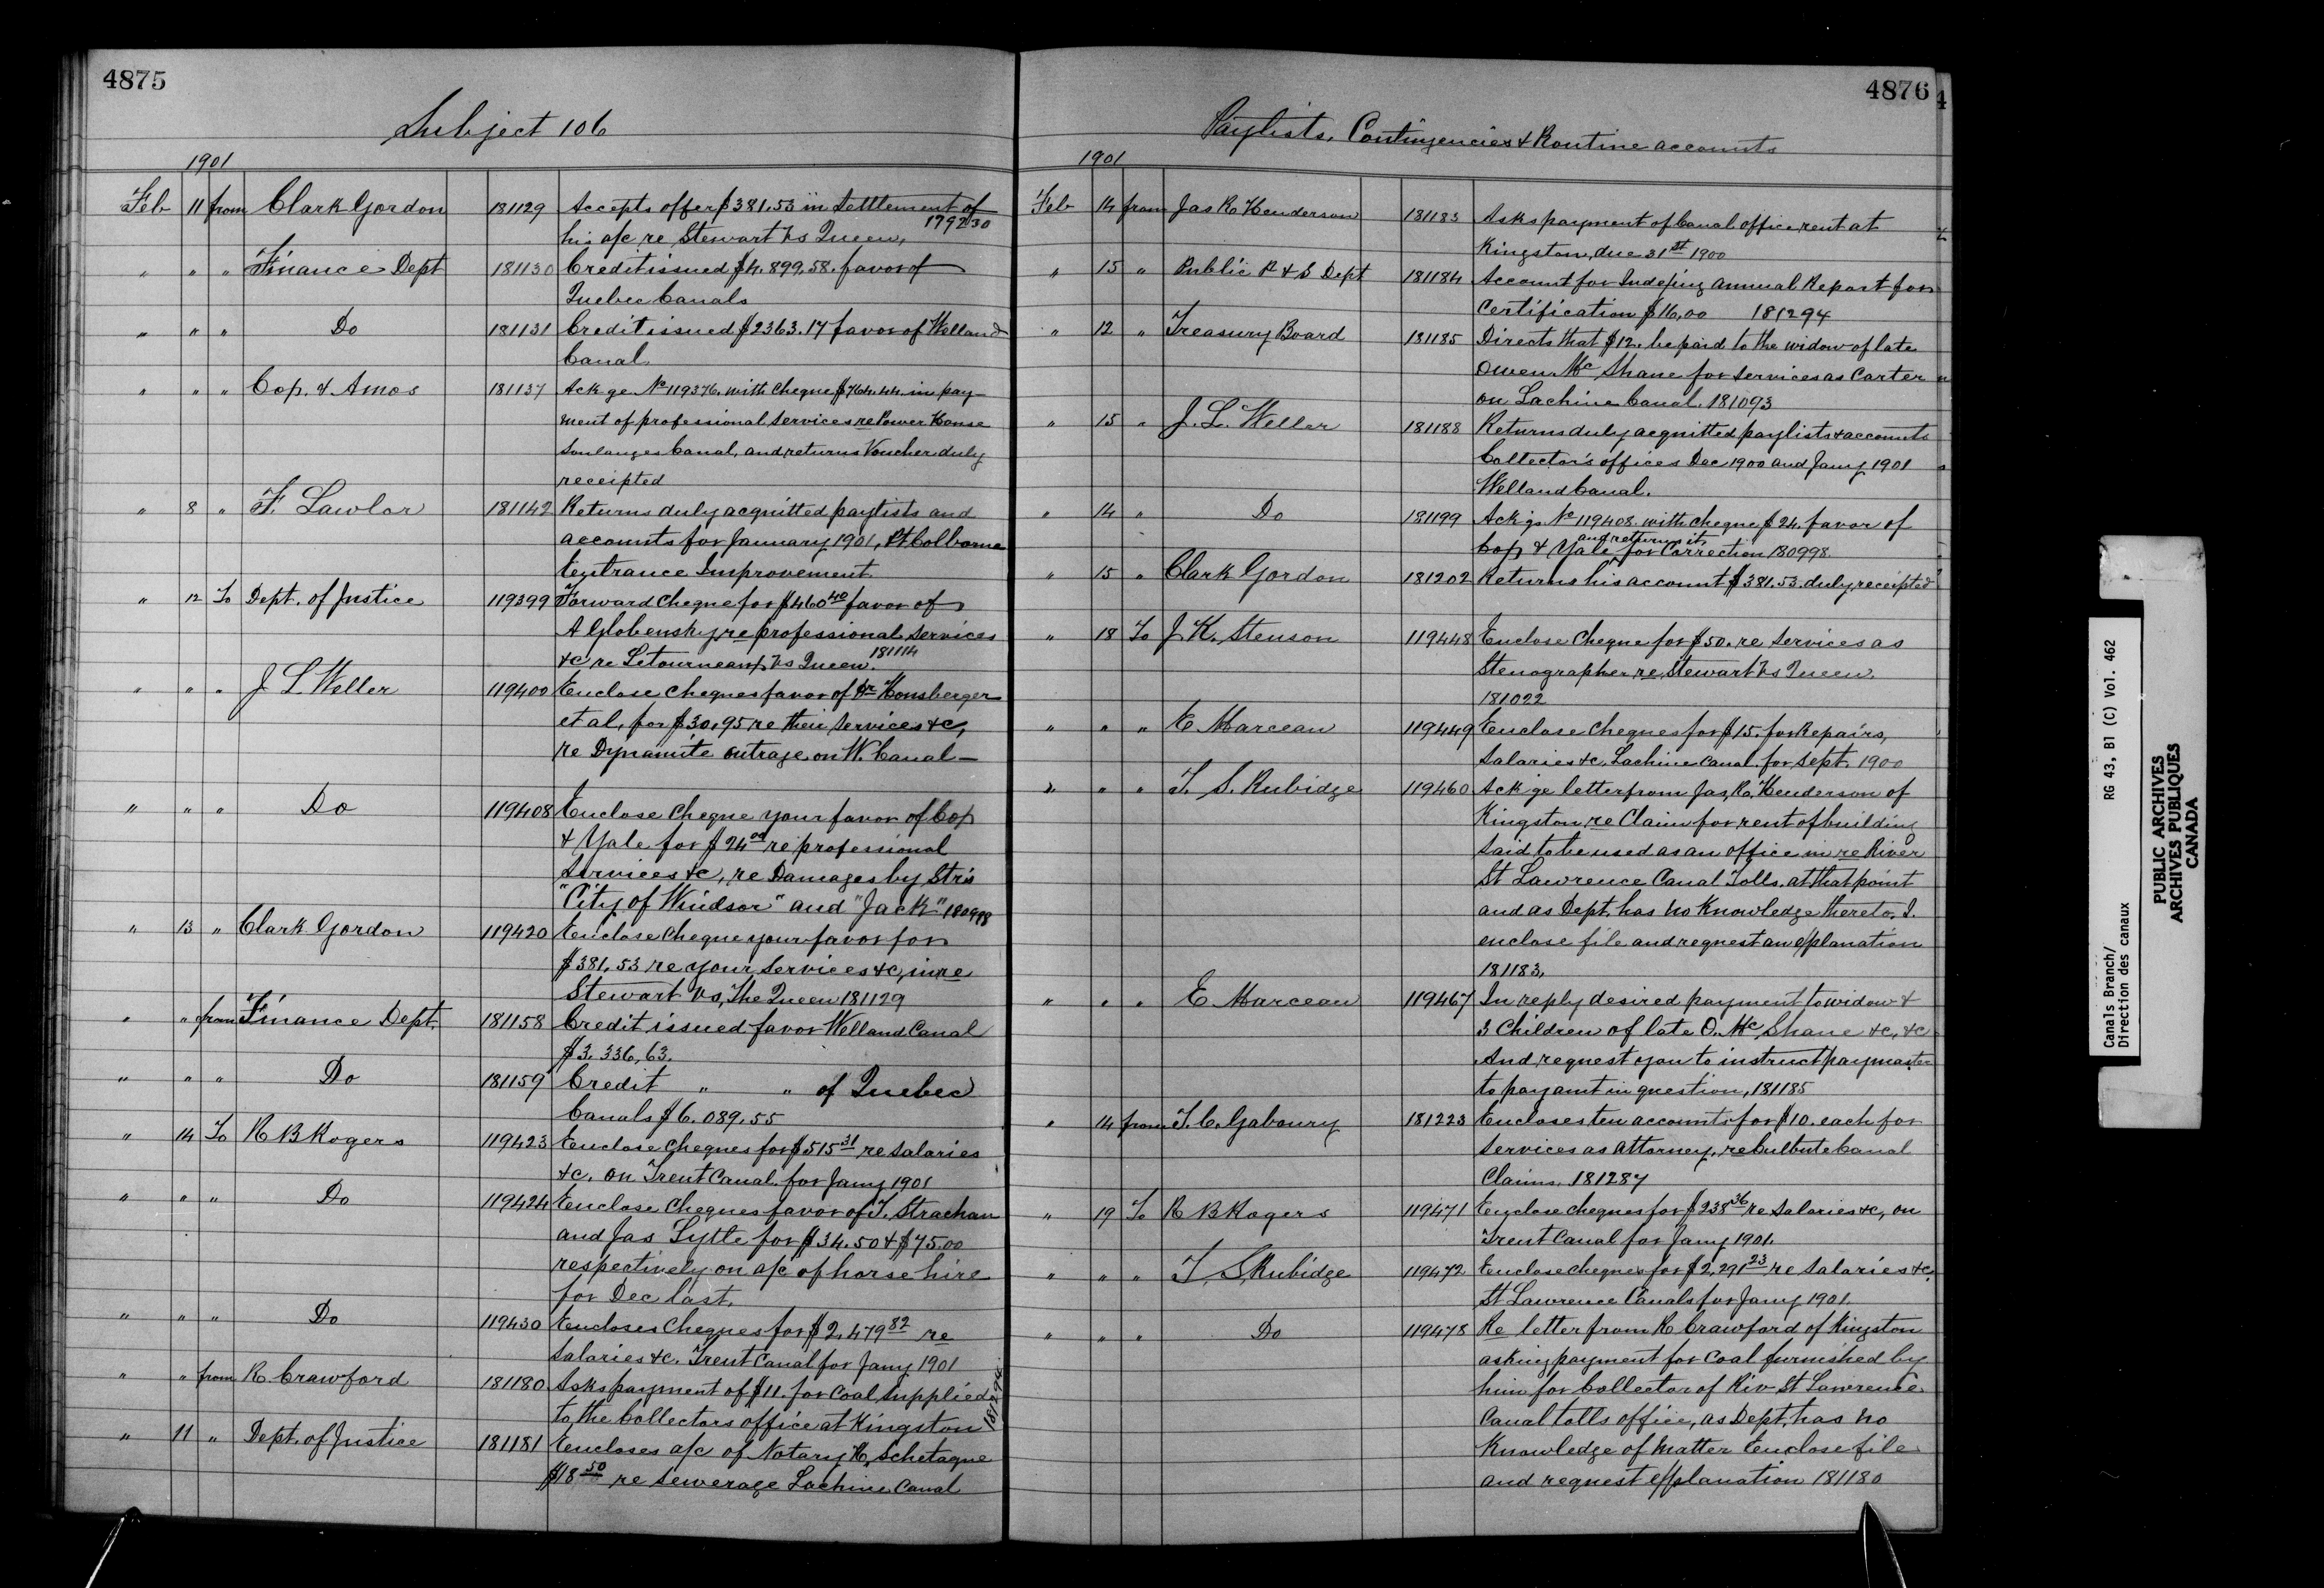 4875
Subject 106
1901
Feb 11 from Clark Gordon 181129 Accepts offer $381.53 in Settlement of
his a/c re Stewart Vs Queen, 179230
" " " Finance Dept 181130 Credit issued $4.899.58. favor of
Quebec Canals
" " " Do 181131 Credit issued $2363.17 favor of Welland
Canal
" " " Cop. & Amos 181137 Ackge No 119376. with Cheque $764.44. in pay-
ment of professional services re Power House
Soulanges Canal, and returns Voucher duly
receipted
" 8 " F. Lawlor 181142 Returns duly acquitted paylists and
accounts for January 1901, Pt Colborne
Entrance Improvement
" 12 To Dept. of Justice 119399 Forward Cheque for $460 40 favor of
A Globensky, re professional services
&c re Letourneau, Vs Queen. 181114
" " " J L Weller 119400 Enclose Cheques favor of Dr Honsberger
et al, for $30.95 re their services &c,
re Dynamite outrage on W. Canal —
" " " Do 119408 Enclose Cheque your favor of Cop
& Yale for $24 00 re professional
Services &c, re Damages by Str's
"City of Windsor" and "Jack" 180998
" 13 " Clark Gordon 119420 Enclose Cheque your favor for
$381.53 re your services &c, in re
Stewart Vs, The Queen 181129
" " from Finance Dept. 181158 Credit issued favor Welland Canal
$3.336,63.
" " " Do 181159 Credit " " of Quebec
Canals $6.089.55
" 14 To R B Rogers 119423 Enclose Cheques for $515 31 re Salaries
&c. on Trent Canal. for Jany 1901
" " " Do 119424 Enclose Cheques favor of T. Strachan
and Jas Lytle for $34.50 & $75.00
respectively on a/c of horse hire
for Dec last.
" " " Do 119430 Encloses Cheques for $2,479 82 re
Salaries &c. Trent Canal for Jany 1901
" " from R. Crawford 181180 Asks payment of $11. for Coal Supplied
to the Collectors office at Kingston
" 11 " Dept. of Justice 181181 Encloses a/c of Notary H. Schetagne
$18 50 re sewerage Lachine Canal
4876
Paylists, Contingencies & Routine accounts
1901
Feb 14 from Jas R Henderson 181183 Asks payment of Canal office rent at
Kingston, due 31st 1900
" 15 " Public P & S Dept 181184 Account for Indexing Annual Report for
Certification $16,00 181294
" 12 " Treasury Board 181185 Directs that $12. be paid to the widow of late
Owen McShane for services as Carter
on Lachine Canal. 181093
" 15 " J. L. Weller 181188 Returns duly acquitted paylists & accounts
Collector's offices Dec 1900 and Jany 1901
Welland Canal.
" 14 " Do 181199 Ackgs No 119408. with cheque $24. favor of
Cop & Yale and returns it for Correction 180998
" 15 " Clark Gordon 181202 Returns his account $381.53. duly receipted
" 18 To J. K. Stenson 119448 Enclose Cheque for $50. re services as
Stenographer re, Stewart Vs Queen.
181022
" " " E Marceau 119449 Enclose Cheques for $15. for Repairs,
Salaries &c. Lachine Canal. for Sept. 1900
" " " T. S. Rubidge 119460 Ackge letter from Jas, R. Henderson of
Kingston re Claim for rent of building
said to be used as an office in re River
St Lawrence Canal Tolls. at that point
and as Dept. has no Knowledge thereto. I.
enclose file and request an explanation
181183.
" " " E Marceau 119467 In reply desired payment to widow &
3 Children of late O. McShane &c, &c
And request you to instruct paymaster
to pay amt in question, 181185
" 14 from T. C. Gaboury 181223 Encloses ten accounts for $10. each for
services as Attorney, re Culbute Canal
Claims. 181287
" 19 To R B Rogers 119471 Enclose cheques for $238 36 re Salaries &c, on
Trent Canal for Jany 1901.
" " " T. S Rubidge 119472 Enclose cheques for $2,291 23 re Salaries &c.
St Lawrence Canals for Jany 1901.
" " " Do 119478 Re letter from R Crawford of Kingston
asking payment for Coal furnished by
him for Collector of Riv St Lawrence
Canal tolls office, as Dept. has no
Knowledge of Matter Enclose file
and request explanation 181180
Canals Branch/
Direction des canaux
RG 43, B1 (C) Vol. 462
PUBLIC ARCHIVES
ARCHIVES PUBLIQUES
CANADA